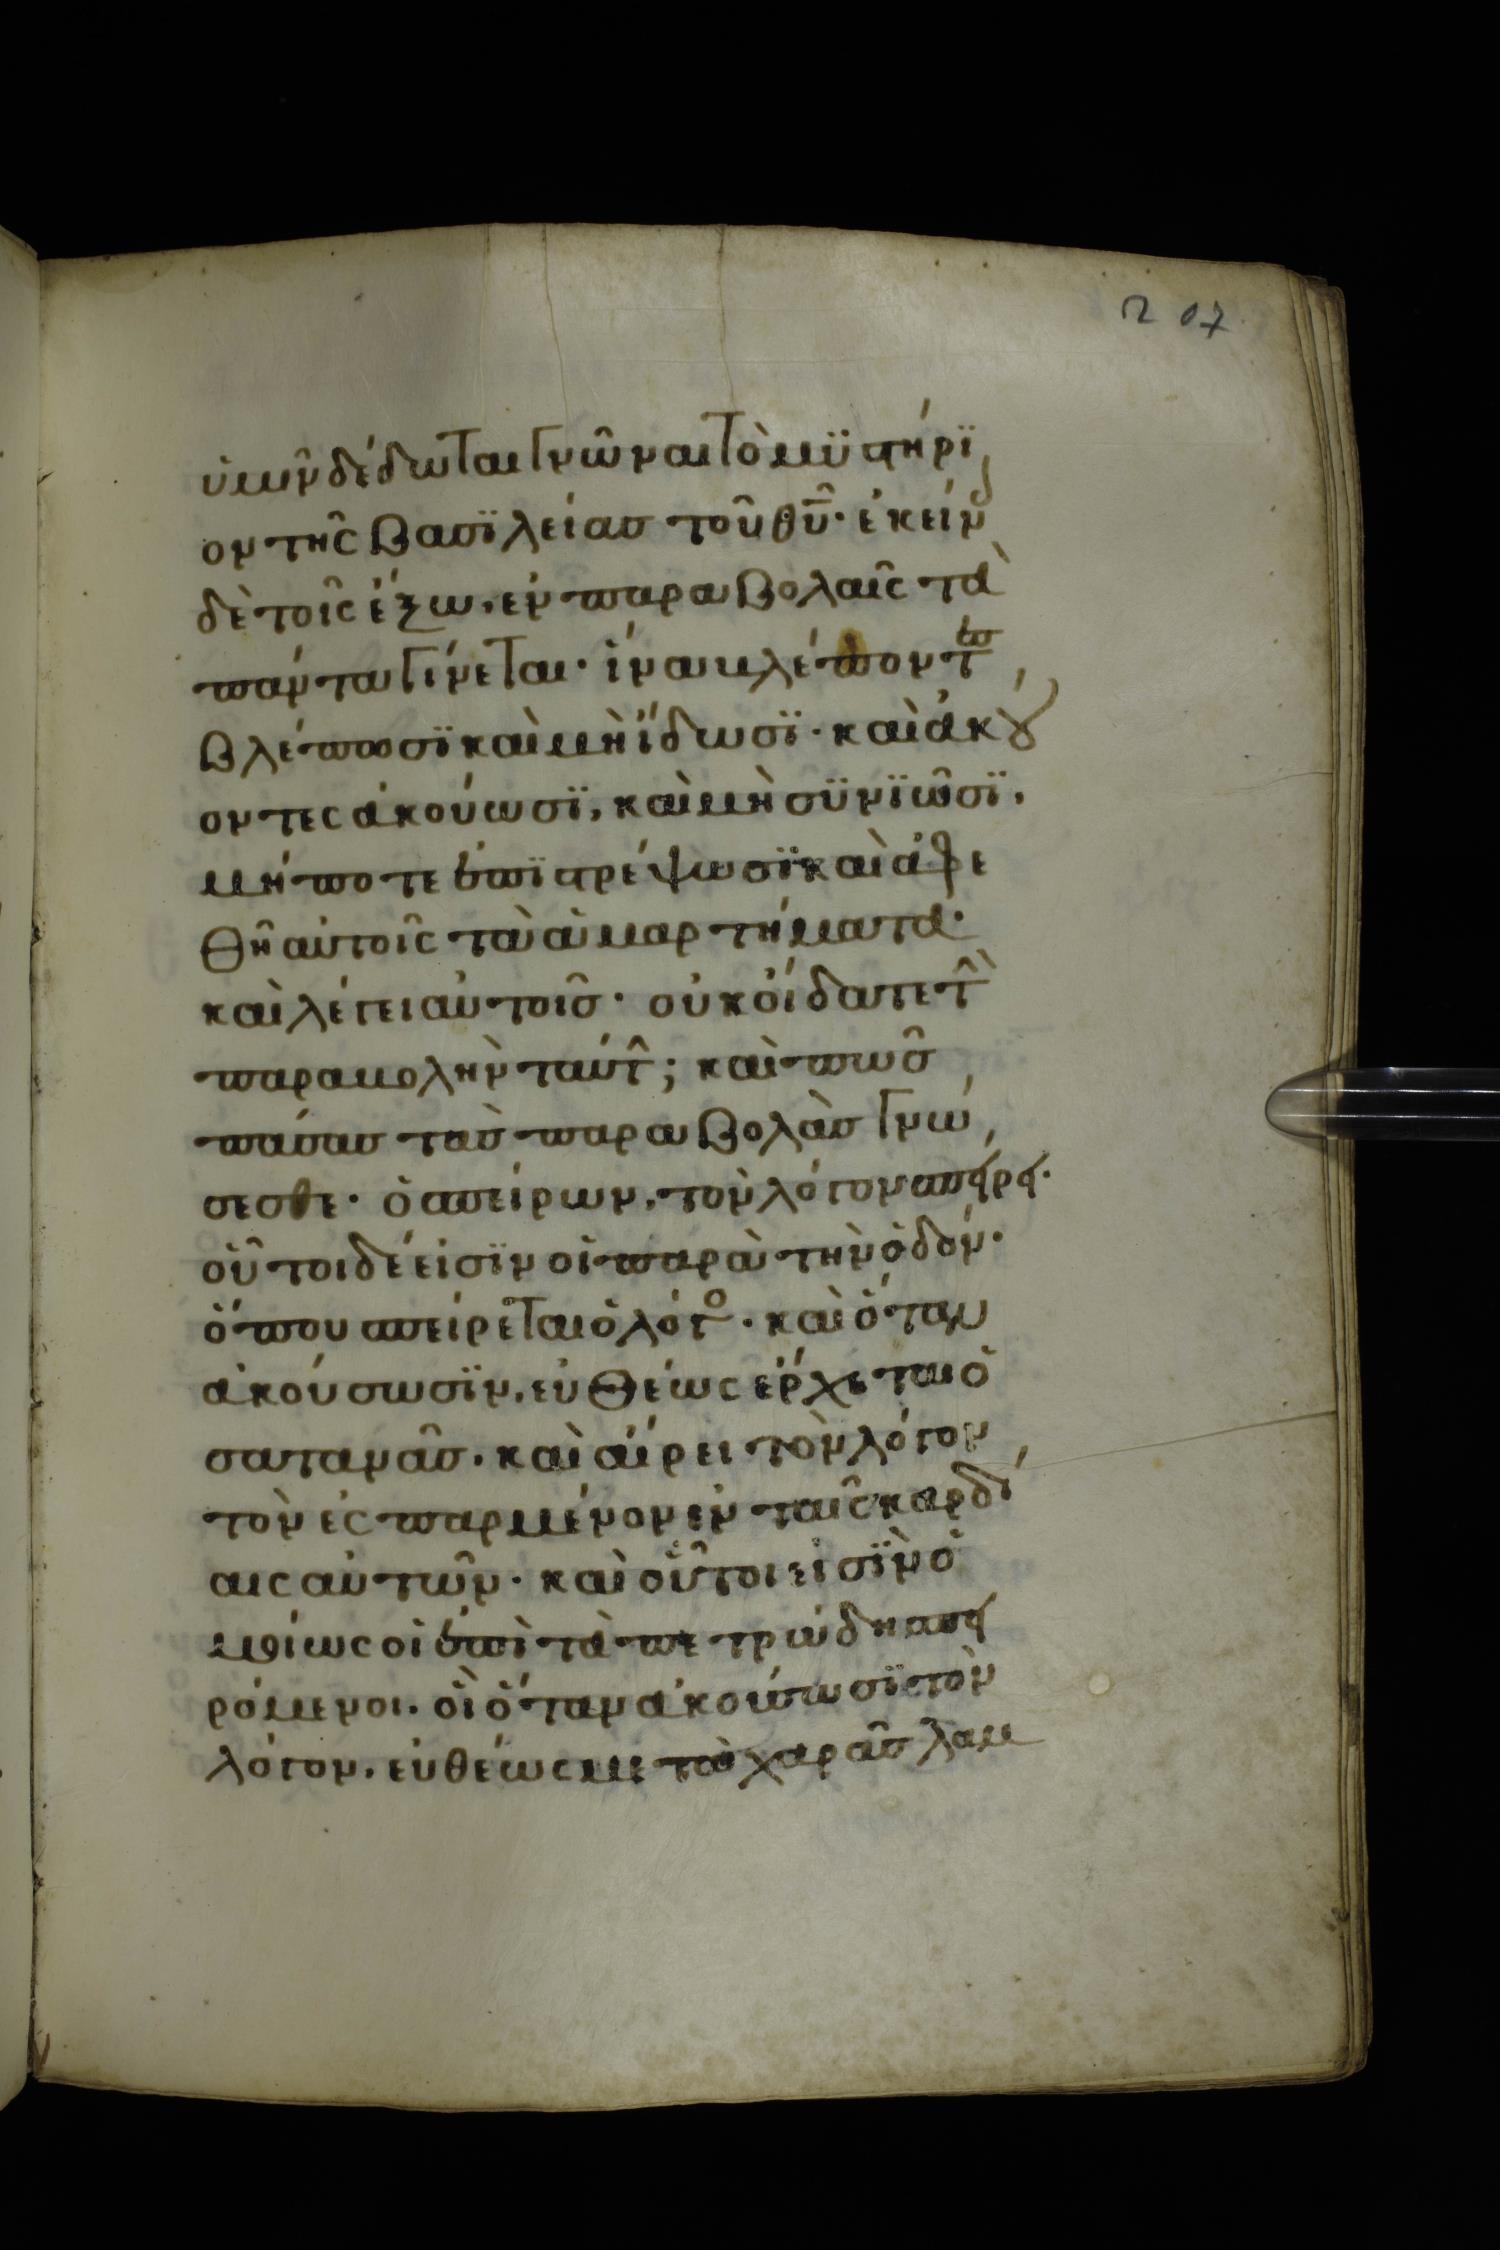 207
ὑμῖν δέδωται γνῶναι τὸ μϋστήρϊ
ον τῆς βασϊλείας τοῦ θῦ· ἐκείν
δὲ τοῖς ἔξω, ἐν παραβολαῖς τὰ
πάντα γίνεται· ἵνα βλέποντες
βλέπωσϊ καὶ μὴ ἴδωσϊ· καὶ ἀκού
οντες ἀκούωσϊ, καὶ μὴ σϋνϊῶσϊ,
μήποτε ἐπϊστρέψωσϊ καὶ ἀφε
θῆ αὐτοῖς τὰ ἁμαρτήματα·
καὶ λέγει αὐτοῖς· οὐκ οἴδατε τὴν
παραβολὴν ταύτην; καὶ πῶς
πάσας τὰς παραβολὰς γνώ
σεσθε· ὁ σπείρων, τὸν λόγον σπείρει·
οὗτοι δέ εἰσϊν οἱ παρὰ τὴν ὁδόν·
ὅπου σπείρεται ὁ λόγος· καὶ ὅταν
ἀκούσωσϊν, εὐθέως ἔρχεται ὁ
σατανᾶς· καὶ αἴρει τὸν λόγον
τὸν ἐσπαρμένον ἐν ταῖς καρδί
αις αὐτῶν· καὶ οὗτοι εἰσϊν ὁ
μοίως οἱ ἐπὶ τὰ πετρώδη σπει
ρόμενοι· οἳ ὅταν ἀκούσωσϊ τὸν
λόγον, εὐθέως μετὰ χαρᾶς λαμ